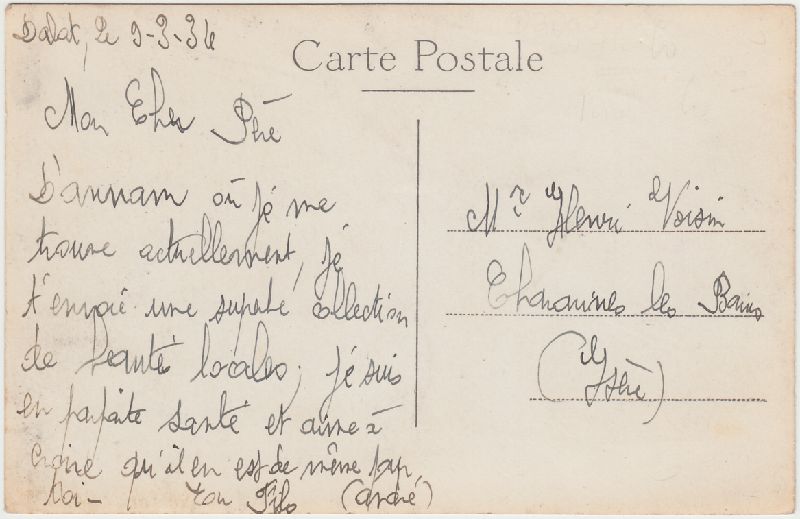 Dalat, le 9-3-36
Carte Postale
Mon Cher Père
D'annam où je me
trouve actuellement, je
t'envoie une superbe collection
de beauté locales, je suis
en parfaite santé et aime à
croire qu'il en est de même pour
toi - ton Fils (andré)
Mr Henri Voisin
Charavines les Bains
(Isère)